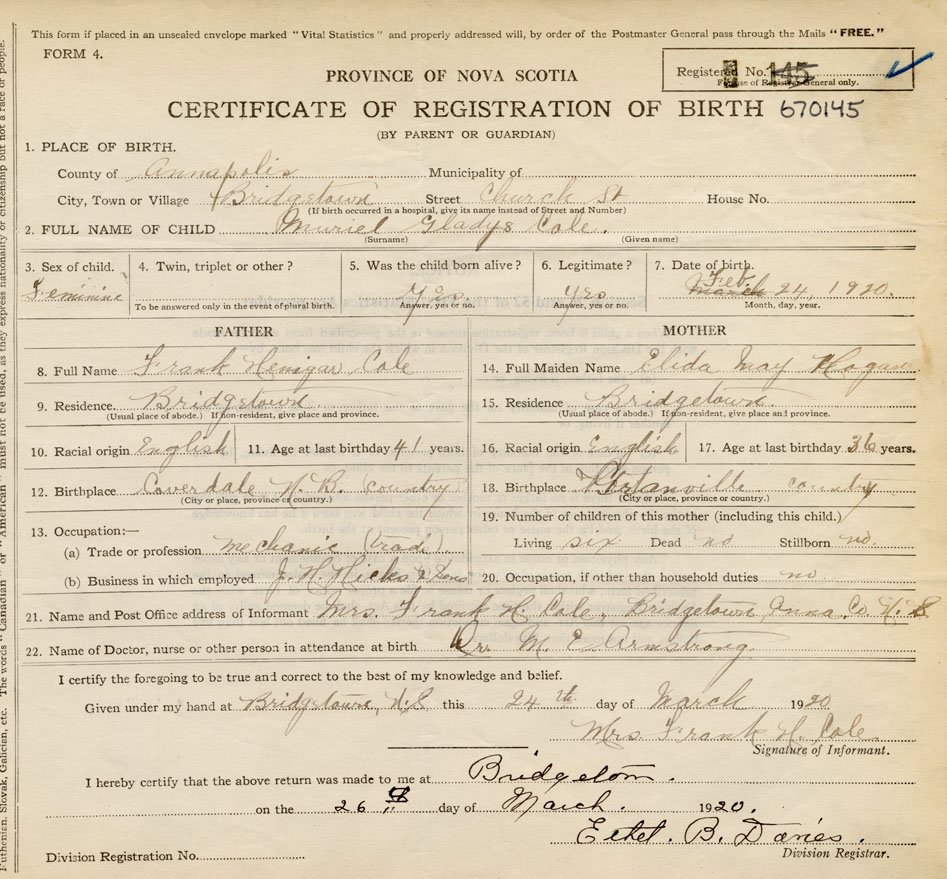 This form if placed in an unsealed envelope marked "Vital Statistics" and properly addressed will, by order of the Postmaster General pass through the Mails "FREE."
FORM 4.
Registered No. 145
For use of Registrar General only.
PROVINCE OF NOVA SCOTIA
CERTIFICATE OF REGISTRATION OF BIRTH 670145
(BY PARENT OR GUARDIAN)
1. PLACE OF BIRTH.
County of Annapolis Municipality of
City, Town or Village Bridgetown Street Church St House No.
(If birth occurred in a hospital, give its name instead of Street and Number)
2. FULL NAME OF CHILD Muriel Gladys Cole.
(Surname) (Given name)
3. Sex of child. 4. Twin, triplet or other? 5. Was the child born alive? 6. Legitimate? 7. Date of birth.
Feminine Yes Yes March Feb 24, 1920.
To be answered only in the event of plural birth. Answer, yes or no. Answer, yes or no. Month, day, year.
FATHER MOTHER
8. Full Name Frank Henigar Cole 14. Full Maiden Name Elida May Hogan
9. Residence. Bridgetown. 15. Residence Bridgetown.
(Usual place of abode.) If non-resident, give place and province. (Usual place of abode.) If non-resident, give place and province.
10. Racial origin English 11. Age at last birthday 41 years. 16. Racial origin English 17. Age at last birthday 36 years.
12. Birthplace Coverdale N. B. country 18. Birthplace country
(City or place, province or country.) (City or place, province or country.)
13. Occupation:— 19. Number of children of this mother (including this child.)
(a) Trade or profession mechanic (trade) Living six Dead no Stillborn no.
(b) Business in which employed J. H. Hicks & Sons 20. Occupation, if other than household duties no.
21. Name and Post Office address of Informant Mrs. Frank H. Cole, Bridgetown Anna. Co. N. S
22. Name of Doctor, nurse or other person in attendance at birth Dr. M. E Armstrong
I certify the foregoing to be true and correct to the best of my knowledge and belief.
Given under my hand at Bridgetown, N.S this 24th day of March 1920
Mrs. Frank H. Cole
Signature of Informant.
I hereby certify that the above return was made to me at Bridgetown.
on the 26 day of March. 1920.
Ethel. B. Davies.
Division Registration No. Division Registrar.
Ruthenian, Slovak, Galician, etc. The words "Canadian" or "American" must not be used, as they express nationality or citizenship but not a race or people.